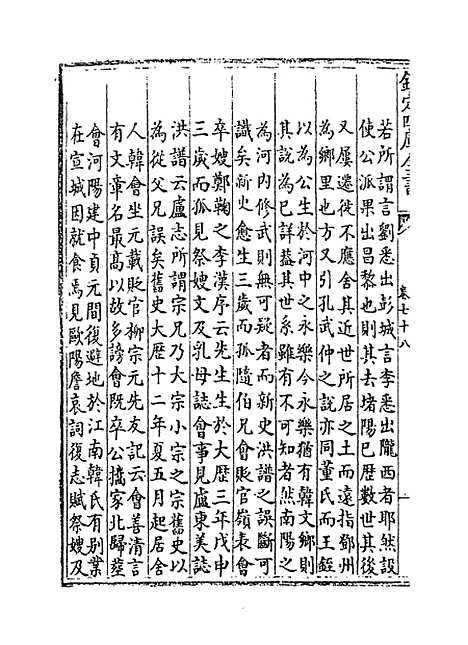 欽定四庫全書
卷七十八
若所謂言劉悉出彭城言李悉出隴西者耶然設
使公派果出昌黎也則其去堵陽已歴數世其後
又屢遷徙不應舍其近世所居之土而遠指鄧州
為鄉里也方又引孔武仲之說亦同董氏而王銍
以為公生於河中之永樂今永樂猶有韓文鄉則
其說為已詳葢其世系雖有不可知者然南陽之
為河内修武則無可疑者而新史洪譜之誤斷可
識矣新史愈生三歲而孤隨伯兄會貶官嶺表會
卒嫂鄭鞠之李漢序云先生生於大歴三年戊申
三歲而孤見祭嫂文及乳母誌會事見盧東美誌
洪譜云盧志所謂宗兄乃大宗小宗之宗舊史以
為從父兄誤矣舊史大歴十二年夏五月起居舍
人韓會坐元載貶官柳宗元先友記云會善清言
有文章名最高以故多謗會既卒公擕家北歸葬
會河陽建中貞元間復避地於江南韓氏有别業
在宣城因就食焉見歐陽詹哀詞復志賦祭嫂及